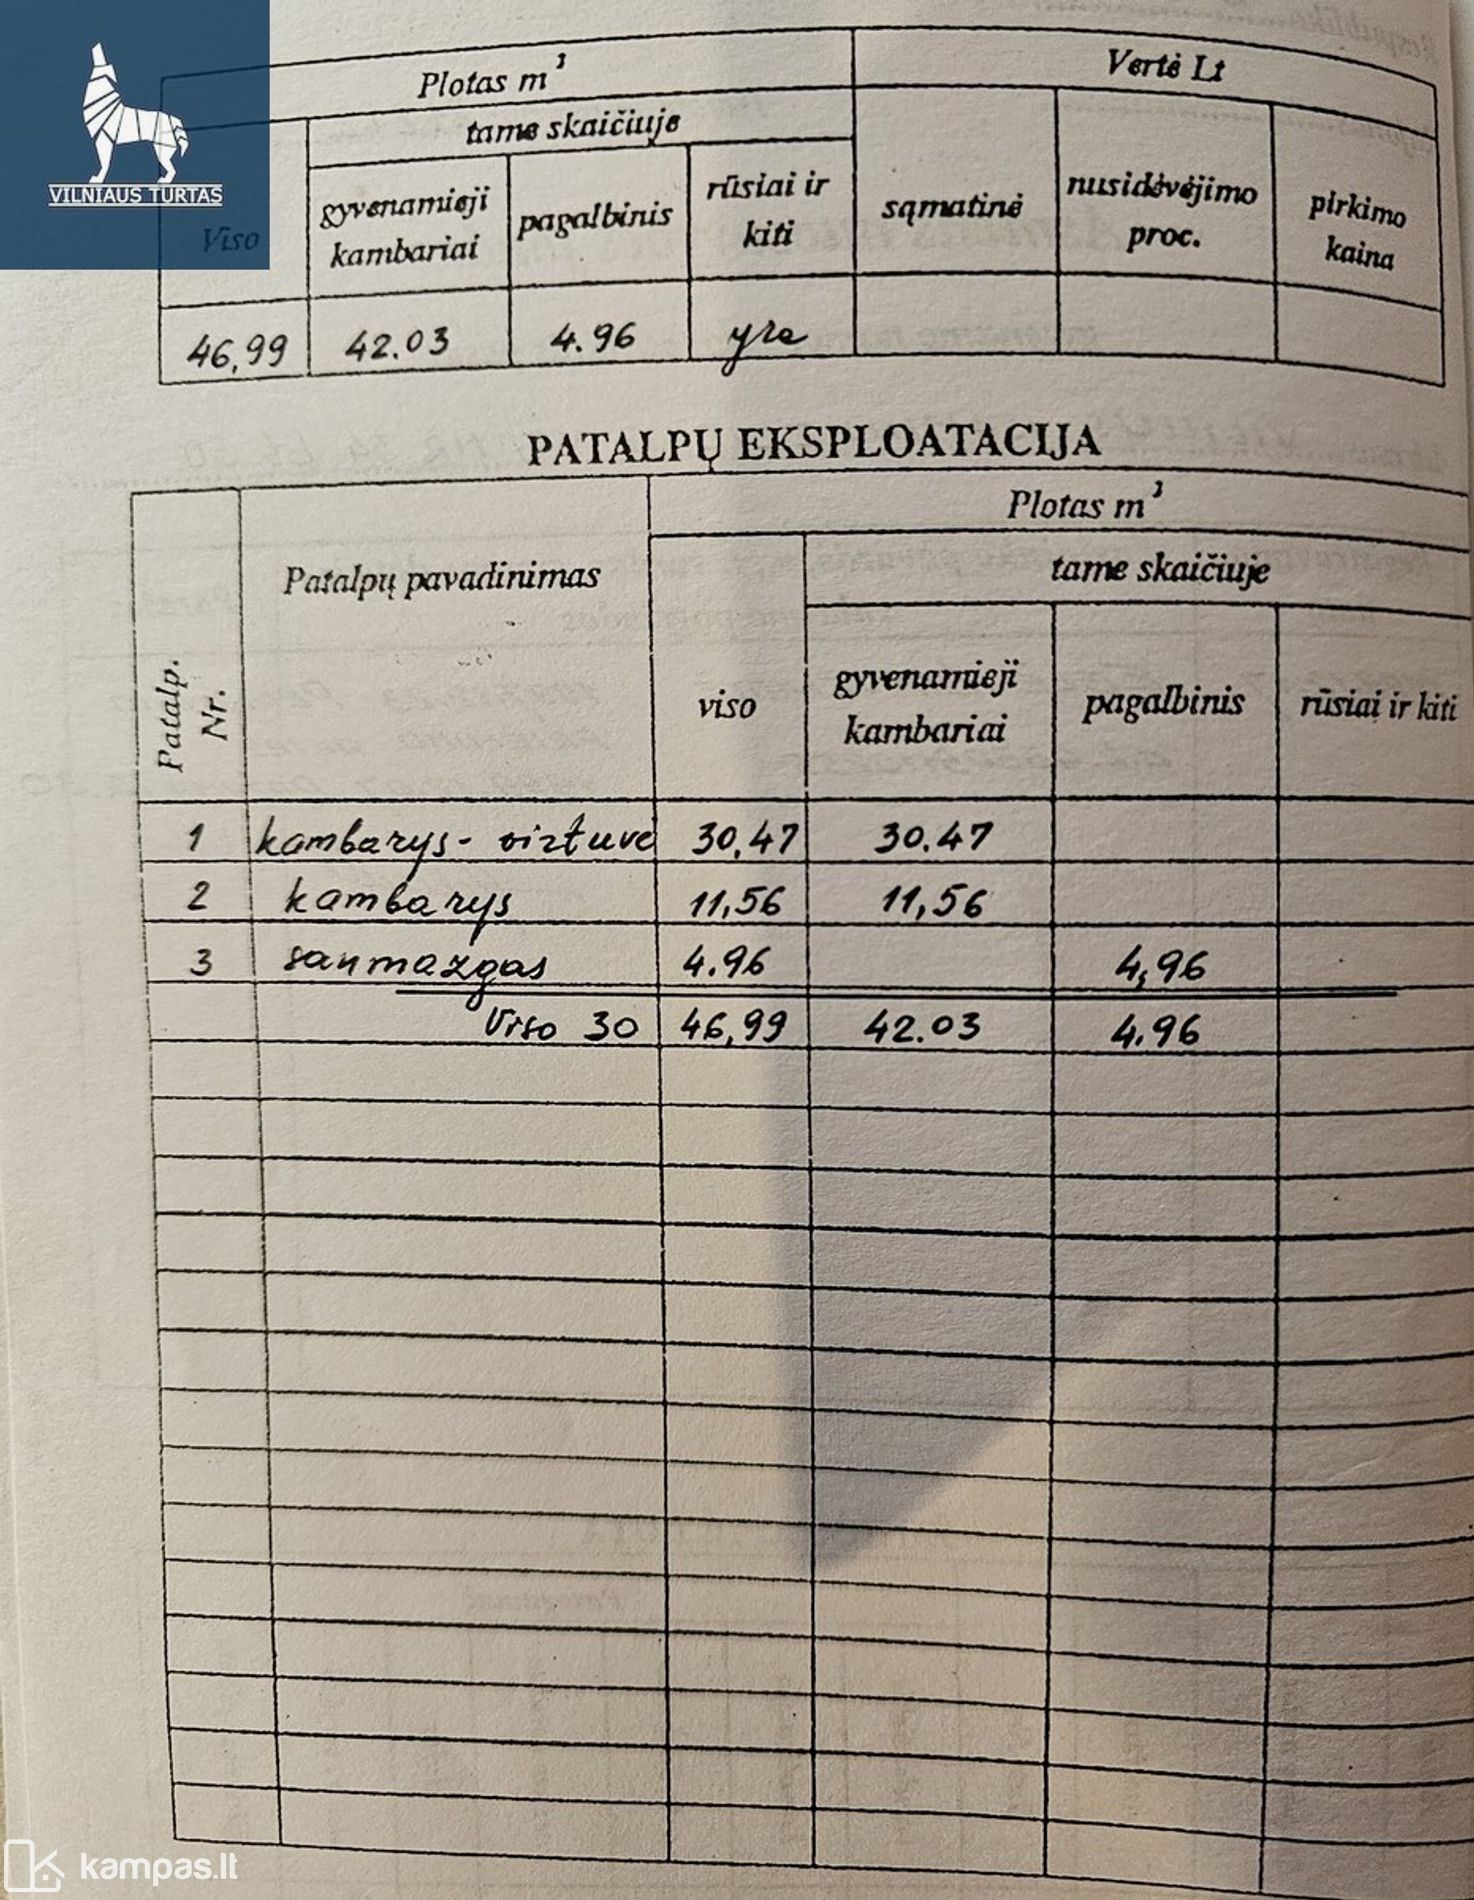 VILNIAUS TURTAS
Plotas m²
Vertė Lt
tame skaičiuje
Viso
gyvenamieji kambariai
pagalbinis
rūsiai ir kiti
sąmatinė
nusidėvėjimo proc.
pirkimo kaina
46,99 42.03 4.96 yra
PATALPŲ EKSPLOATACIJA
Patalp. Nr.
Patalpų pavadinimas
Plotas m²
tame skaičiuje
viso
gyvenamieji kambariai
pagalbinis
rūsiai ir kiti
1 kambarys-virtuvė 30,47 30.47
2 kambarys 11,56 11,56
3 sanmazgas 4.96 4,96
Viso 30 46,99 42.03 4.96
kampas.lt